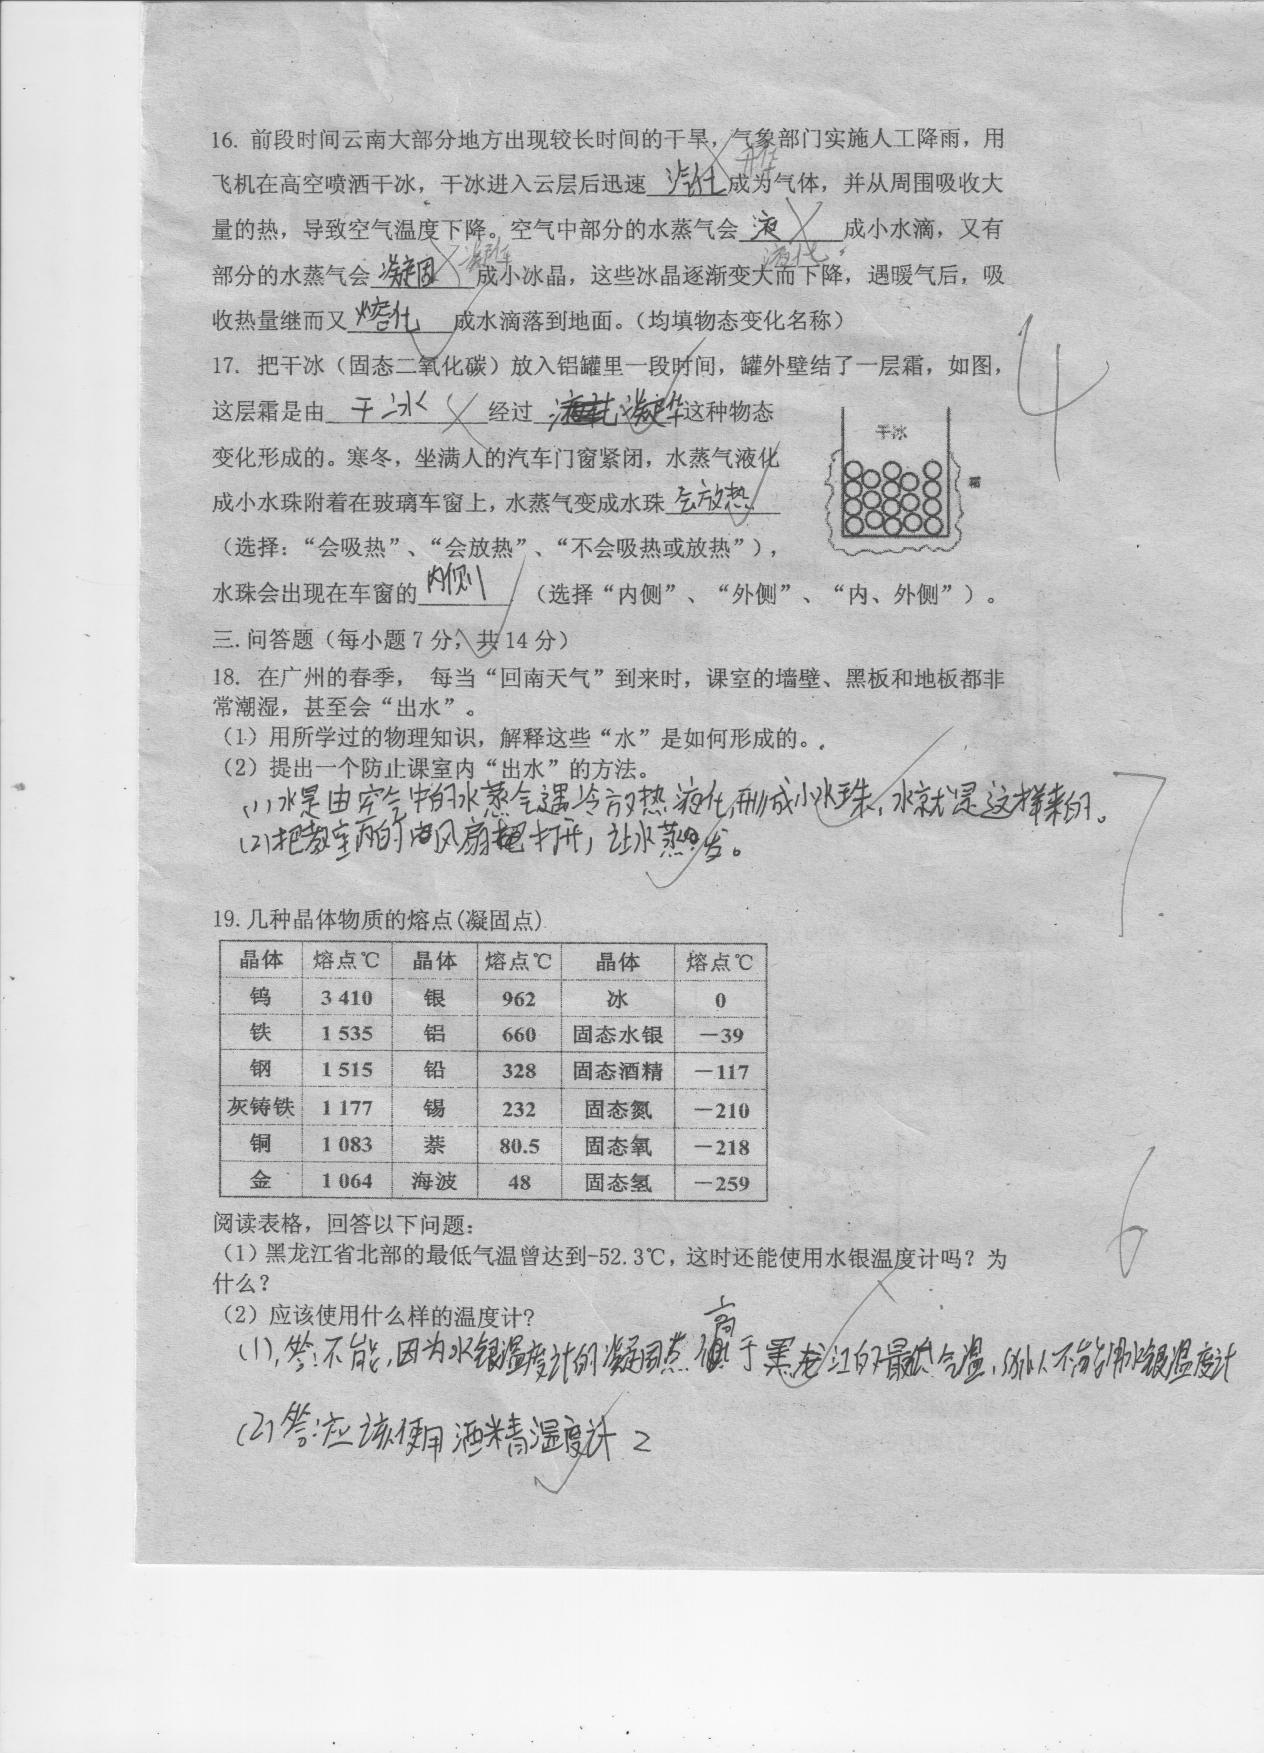 16. 前段时间云南大部分地方出现较长时间的干旱，气象部门实施人工降雨，用
升华
飞机在高空喷洒干冰，干冰进入云层后迅速 汽化 成为气体，并从周围吸收大
量的热，导致空气温度下降。空气中部分的水蒸气会 液 成小水滴，又有
凝华 液化
部分的水蒸气会 凝固 成小冰晶，这些冰晶逐渐变大而下降，遇暖气后，吸
收热量继而又 熔化 成水滴落到地面。（均填物态变化名称）
4
17. 把干冰（固态二氧化碳）放入铝罐里一段时间，罐外壁结了一层霜，如图，
这层霜是由 干冰 经过 凝华 这种物态
干冰
变化形成的。寒冬，坐满人的汽车门窗紧闭，水蒸气液化
霜
成小水珠附着在玻璃车窗上，水蒸气变成水珠 会放热
（选择：“会吸热”、“会放热”、“不会吸热或放热”），
水珠会出现在车窗的 内侧 （选择“内侧”、“外侧”、“内、外侧”）。
三.问答题（每小题7分，共14分）
18. 在广州的春季， 每当“回南天气”到来时，课室的墙壁、黑板和地板都非
常潮湿，甚至会“出水”。
（1）用所学过的物理知识，解释这些“水”是如何形成的。
（2）提出一个防止课室内“出水”的方法。
(1)水是由空气中的水蒸气遇冷放热液化,形成小水珠,水就是这样来的。
7
(2)把教室内的 风扇 打开，让水蒸发。
19.几种晶体物质的熔点(凝固点)
晶体 熔点℃ 晶体 熔点℃ 晶体 熔点℃
钨 3 410 银 962 冰 0
铁 1 535 铝 660 固态水银 －39
钢 1 515 铅 328 固态酒精 －117
灰铸铁 1 177 锡 232 固态氮 －210
铜 1 083 萘 80.5 固态氧 －218
金 1 064 海波 48 固态氢 －259
6
阅读表格，回答以下问题：
（1）黑龙江省北部的最低气温曾达到-52.3℃，这时还能使用水银温度计吗？为
什么？
（2）应该使用什么样的温度计?
(1),答:不能,因为水银温度计的凝固点 高 于黑龙江的最低气温,所以不能用水银温度计
(2)答:应该使用酒精温度计 2